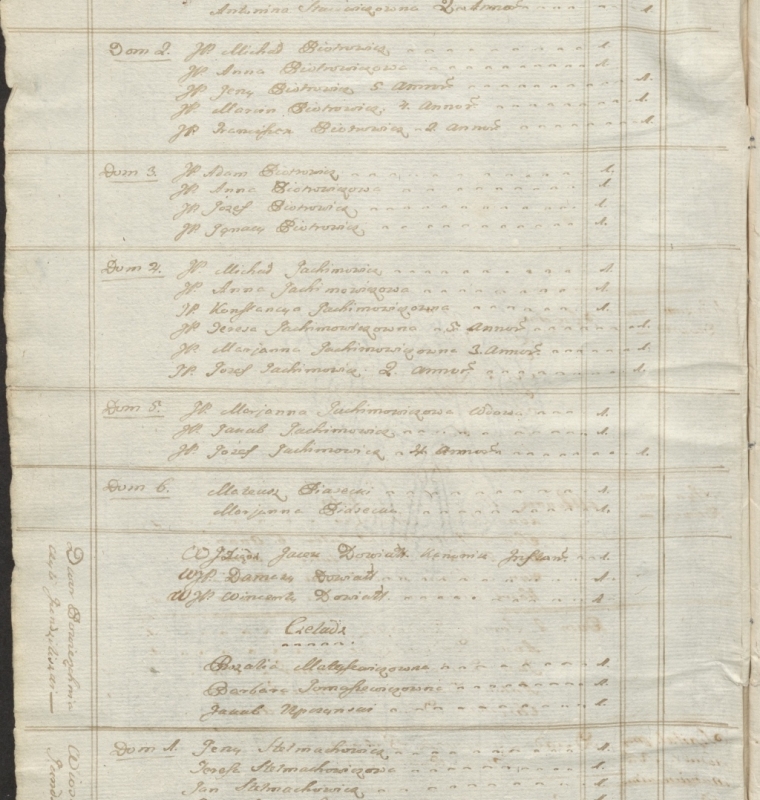 Antonina Stanciewiczowna 2 Annor 1.
Dom 2. JP. Michał Piotrowicz 1.
JP. Anna Piotrowiczowa 1.
JP. Jerzy Piotrowicz 5 Annor 1.
JP. Marcin Piotrowicz 4. Annor 1.
JP. Franciszek Piotrowicz 2 Annor 1.
Dom 3. JP. Adam Piotrowicz 1.
JP. Anna Piotrowiczowa 1.
JP. Jozef Piotrowicz 1.
JP. Ignacy Piotrowicz 1.
Dom 4. JP. Michał Jachimowicz 1.
JP. Anna Jachimowiczowa 1.
JP. Konstancya Jachimowiczowna 1.
JP. Teressa Jachimowiczowna 5. Annor 1.
JP. Marjanna Jachimowiczowna 3. Annor 1.
JP. Jozef Jachimowicz 2. Annor 1.
Dom 5. JP. Marjanna Jachimowiczowa Wdow. 1.
JP. Jakub Jachimowicz 1.
JP. Jozef Jachimowicz 4 Annor 1.
Dom 6. Mateusz Piasecki 1.
Marjanna Piasecka 1.
Dwor
W Jacek Dowiatt Kanonik Inflan. 1.
WJP. Damazy Dowiatt 1.
WJP Wincenty Dowiatt 1.
Czeladz
Rozalia 1.
Barbara Tomaszewiczowna 1.
Jakub 1.
Dom 1. Jerzy Stelmachowicz 1.
Stelmachowiczowa 1.
Jan Stelmachowicz 1.